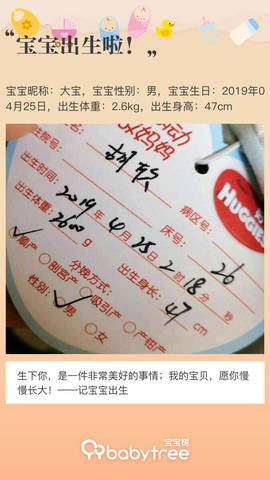 “宝宝出生啦！”
宝宝昵称：大宝，宝宝性别：男，宝宝生日：2019年0
4月25日，出生体重：2.6kg，出生身高：47cm
妈妈
住院号：
病区号：
床号：26
出生时间：2019年4月25日2时18分
出生体重：2600g
出生身长：47cm
分娩方式：
顺产 剖宫产 吸引产 产钳产
性别： 男 女
HUGGIES
生下你，是一件非常美好的事情；我的宝贝，愿你慢
慢长大！——记宝宝出生
宝宝树
babytree